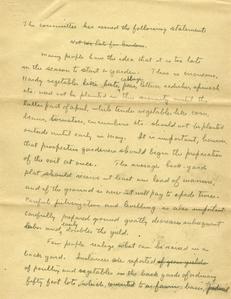 The committee has issued the following statement
Not too late for Gardens.
Many people have the idea that it is too late
in the season to start a garden. This is erroneous,
Hardy vegetables like peas, cabbage, lettuce, radishes, spinach
etc. need not be planted until the
latter part of April, while tender vegetables like corn,
beans, tomatoes, cucumbers etc should not be planted
outside until early in May. It is important, however
that prospective gardeners should begin the preparation
of the soil at once. The average back yard
plot should receive at least one load of manure,
and if the ground is new it will pay to spade twice.
Careful pulverizing and levelling is also important
Carefully prepared ground greatly decreases subsequent
labor and nearly doubles the yield.
Few people realize what can be raised in a
back yard. Instances are reported
of poultry and vegetables in the back yards of ordinary
fifty foot lots, which, converted to a farm basis,